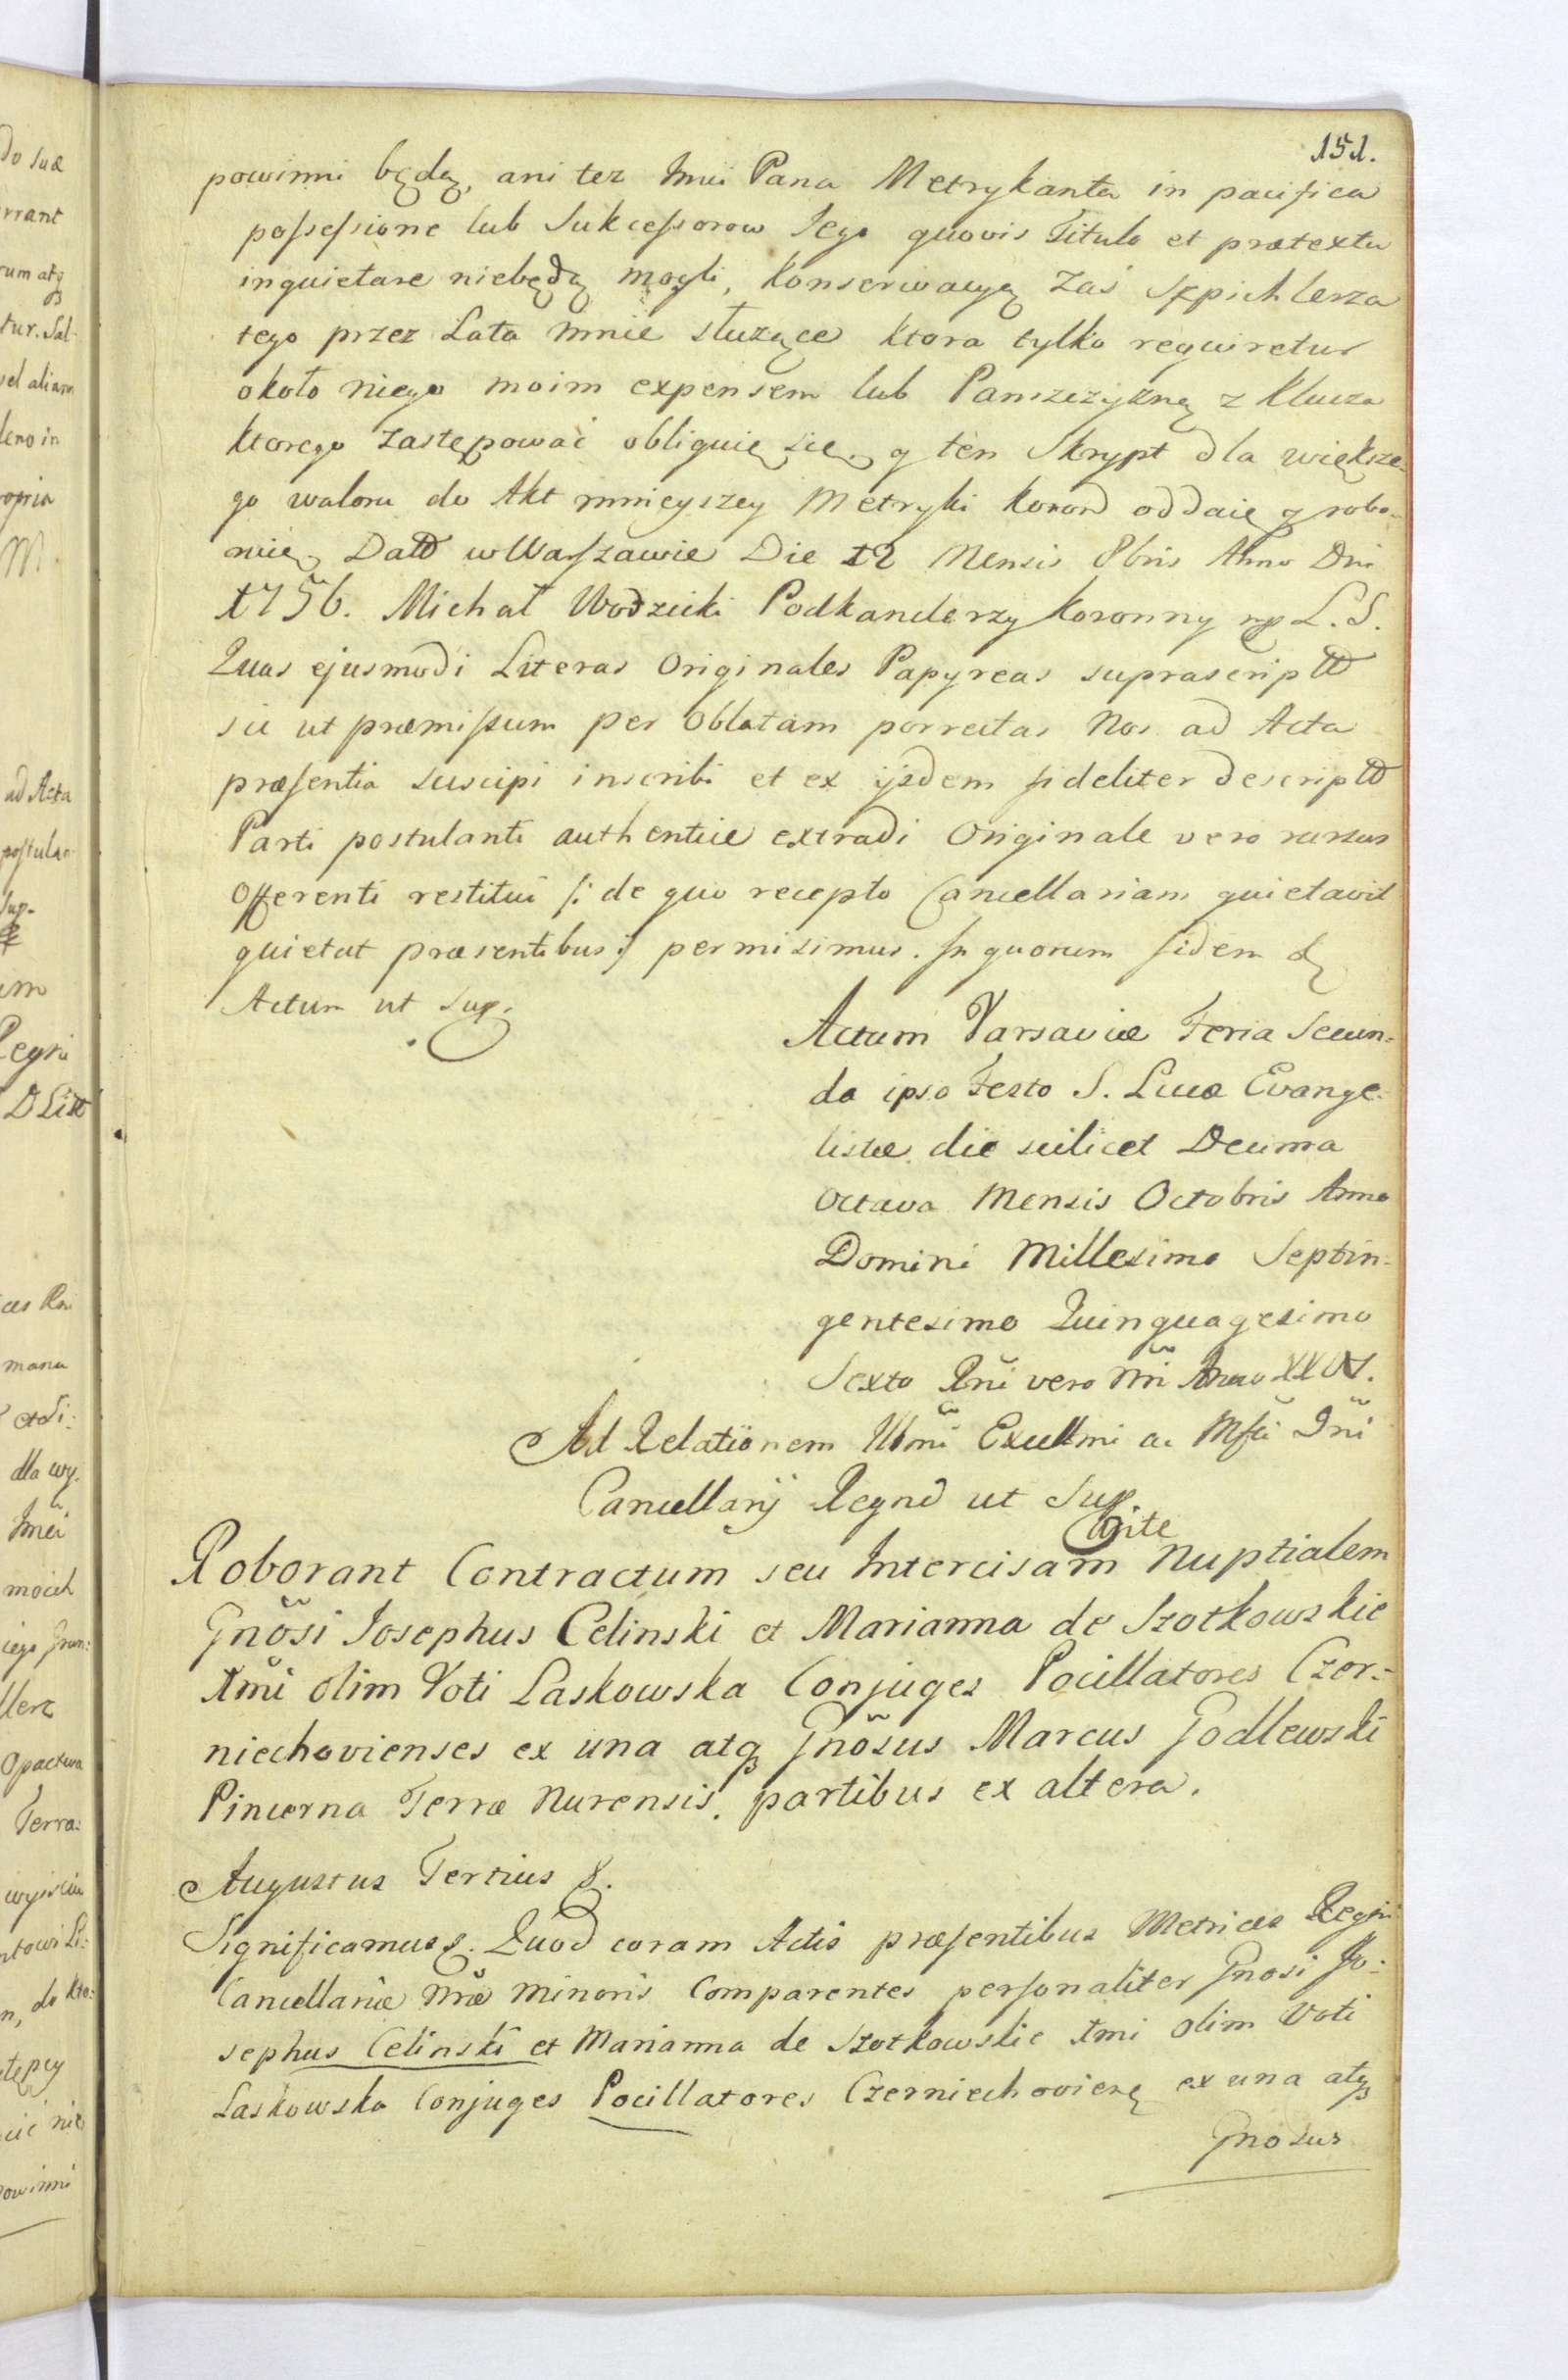 151.
powinni będą, ani tez Jmći Pana Metrykanta in pacifica
possessione lub Sukcessorow Jego quovis Titulo et prætextu
inquietare niebędą mogli, konserwacyą zaś Szpichlerza
tego przez Lata mnie służące ktora tylko requiretur
około niego moim expensem lub Panszczyzną z Klucza
ktorego zastępować obliguię się. y ten Skrypt dla większe-
go waloru do Akt mnieyszey Metryki Korond oddaię y robo-
ruię. Datt w Warszawie Die 12 Mensis 8bris Anno Dni
1756. Michał Wodzicki Podkanclerzy Koronny mp L.S.
Quas ejusmodi Literas Originales Papyreas suprascriptt
sic ut præmissum per Oblatam porrectas Nos ad Acta
præsentia suscipi inscribi et ex ijsdem fideliter descriptt
Parti postulanti authentice extradi Originale vero rursus
Offerenti restitui /: de quo recepto Cancellariam quietavit
quietat præsentibus :/ permisimus. In quorum fidem &
Actum ut sup.
Actum Varsaviæ Feria Secun-
da ipso Festo S. Lucæ Evange-
listæ die scilicet Decima
Octava Mensis Octobris Anno
Domini Millesimo Septin-
gentesimo Quinquagesimo
Sexto Rni vero Nri Anno XXIV.
Ad Relationem Illmi Excellmi ac Mfci Dni
Cancellarij Regnd ut Sup
Roborant Contractum seu Intercisam Nuptialem
Gnosi Josephus Celinski et Marianna de Szotkowskie
1mi olim Voti Laskowska Conjuges Pocillatores Czer-
niechovienses ex una atq Gnosus Marcus Godlewski
Pincerna Terræ Nurensis. partibus ex altera.
Augustus Tertius &.
Significamus &. Quod coram Actis præsentibus Metrices Regni
Cancellariæ Nræ Minoris Comparentes personaliter Gnosi Jo-
sephus Celinski et Marianna de Szotkowskie 1mi olim Voti
Laskowska Conjuges Pocillatores Czerniechovien ex una atq
Gnosus